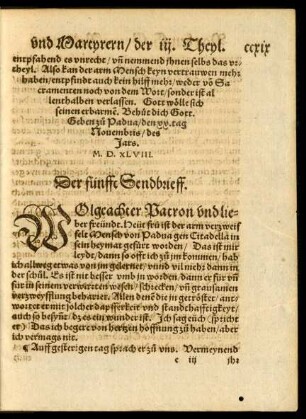 vnd Martyrern/ der iij. Theyl. ccxix
entpfahend es vnrecht/ vñ nemmend jhnen selbs das vr-
theyl. Also kan der arm Mensch keyn vertrauwen mehr
haben/ entpfindt auch kein hilff mehr/ weder vō Sa
cramenten noch von dem Wort/ sonder ist al
lenthalben verlassen. Gott wölle sich
seinen erbarmē. Behüt dich Gott.
Geben zů Padua/ den xx. tag
Nouembris/ des
Jars.
M. D. XLVIII.
Der fünffte Sendbrieff.
WOlgeachter Patron vnd lie-
ber freündt. Heüt frü ist der arm verzweif
felt Mensch von Padua gen Citadella in
sein heymat gefürt worden/ Das ist mir
leydt/ dann so offt ich zů jm kommen/ hab
ich allweg etwas von jm gelernet/ vnnd vil mehr dann in
der schůl. Es ist nit besser vnb jn worden/ dann er für vñ
für in seinem verwirrten wesen/ schiecken/ vñ grausamen
verzweyfflung beharret. Allen denē die jn getröstet/ ant/
wortet er mit solcher dapfferkeit vnd standthafftigkeyt/
auch so besyñt/ dz es ein wunder ist. Ich sag euch (spricht
er) Das ich beger von hertzen hoffnung zů haben/ aber
ich vermags nit.
¶ Auff gesterigen tag sprach er zů vns. Vermeynend
e iij jhr